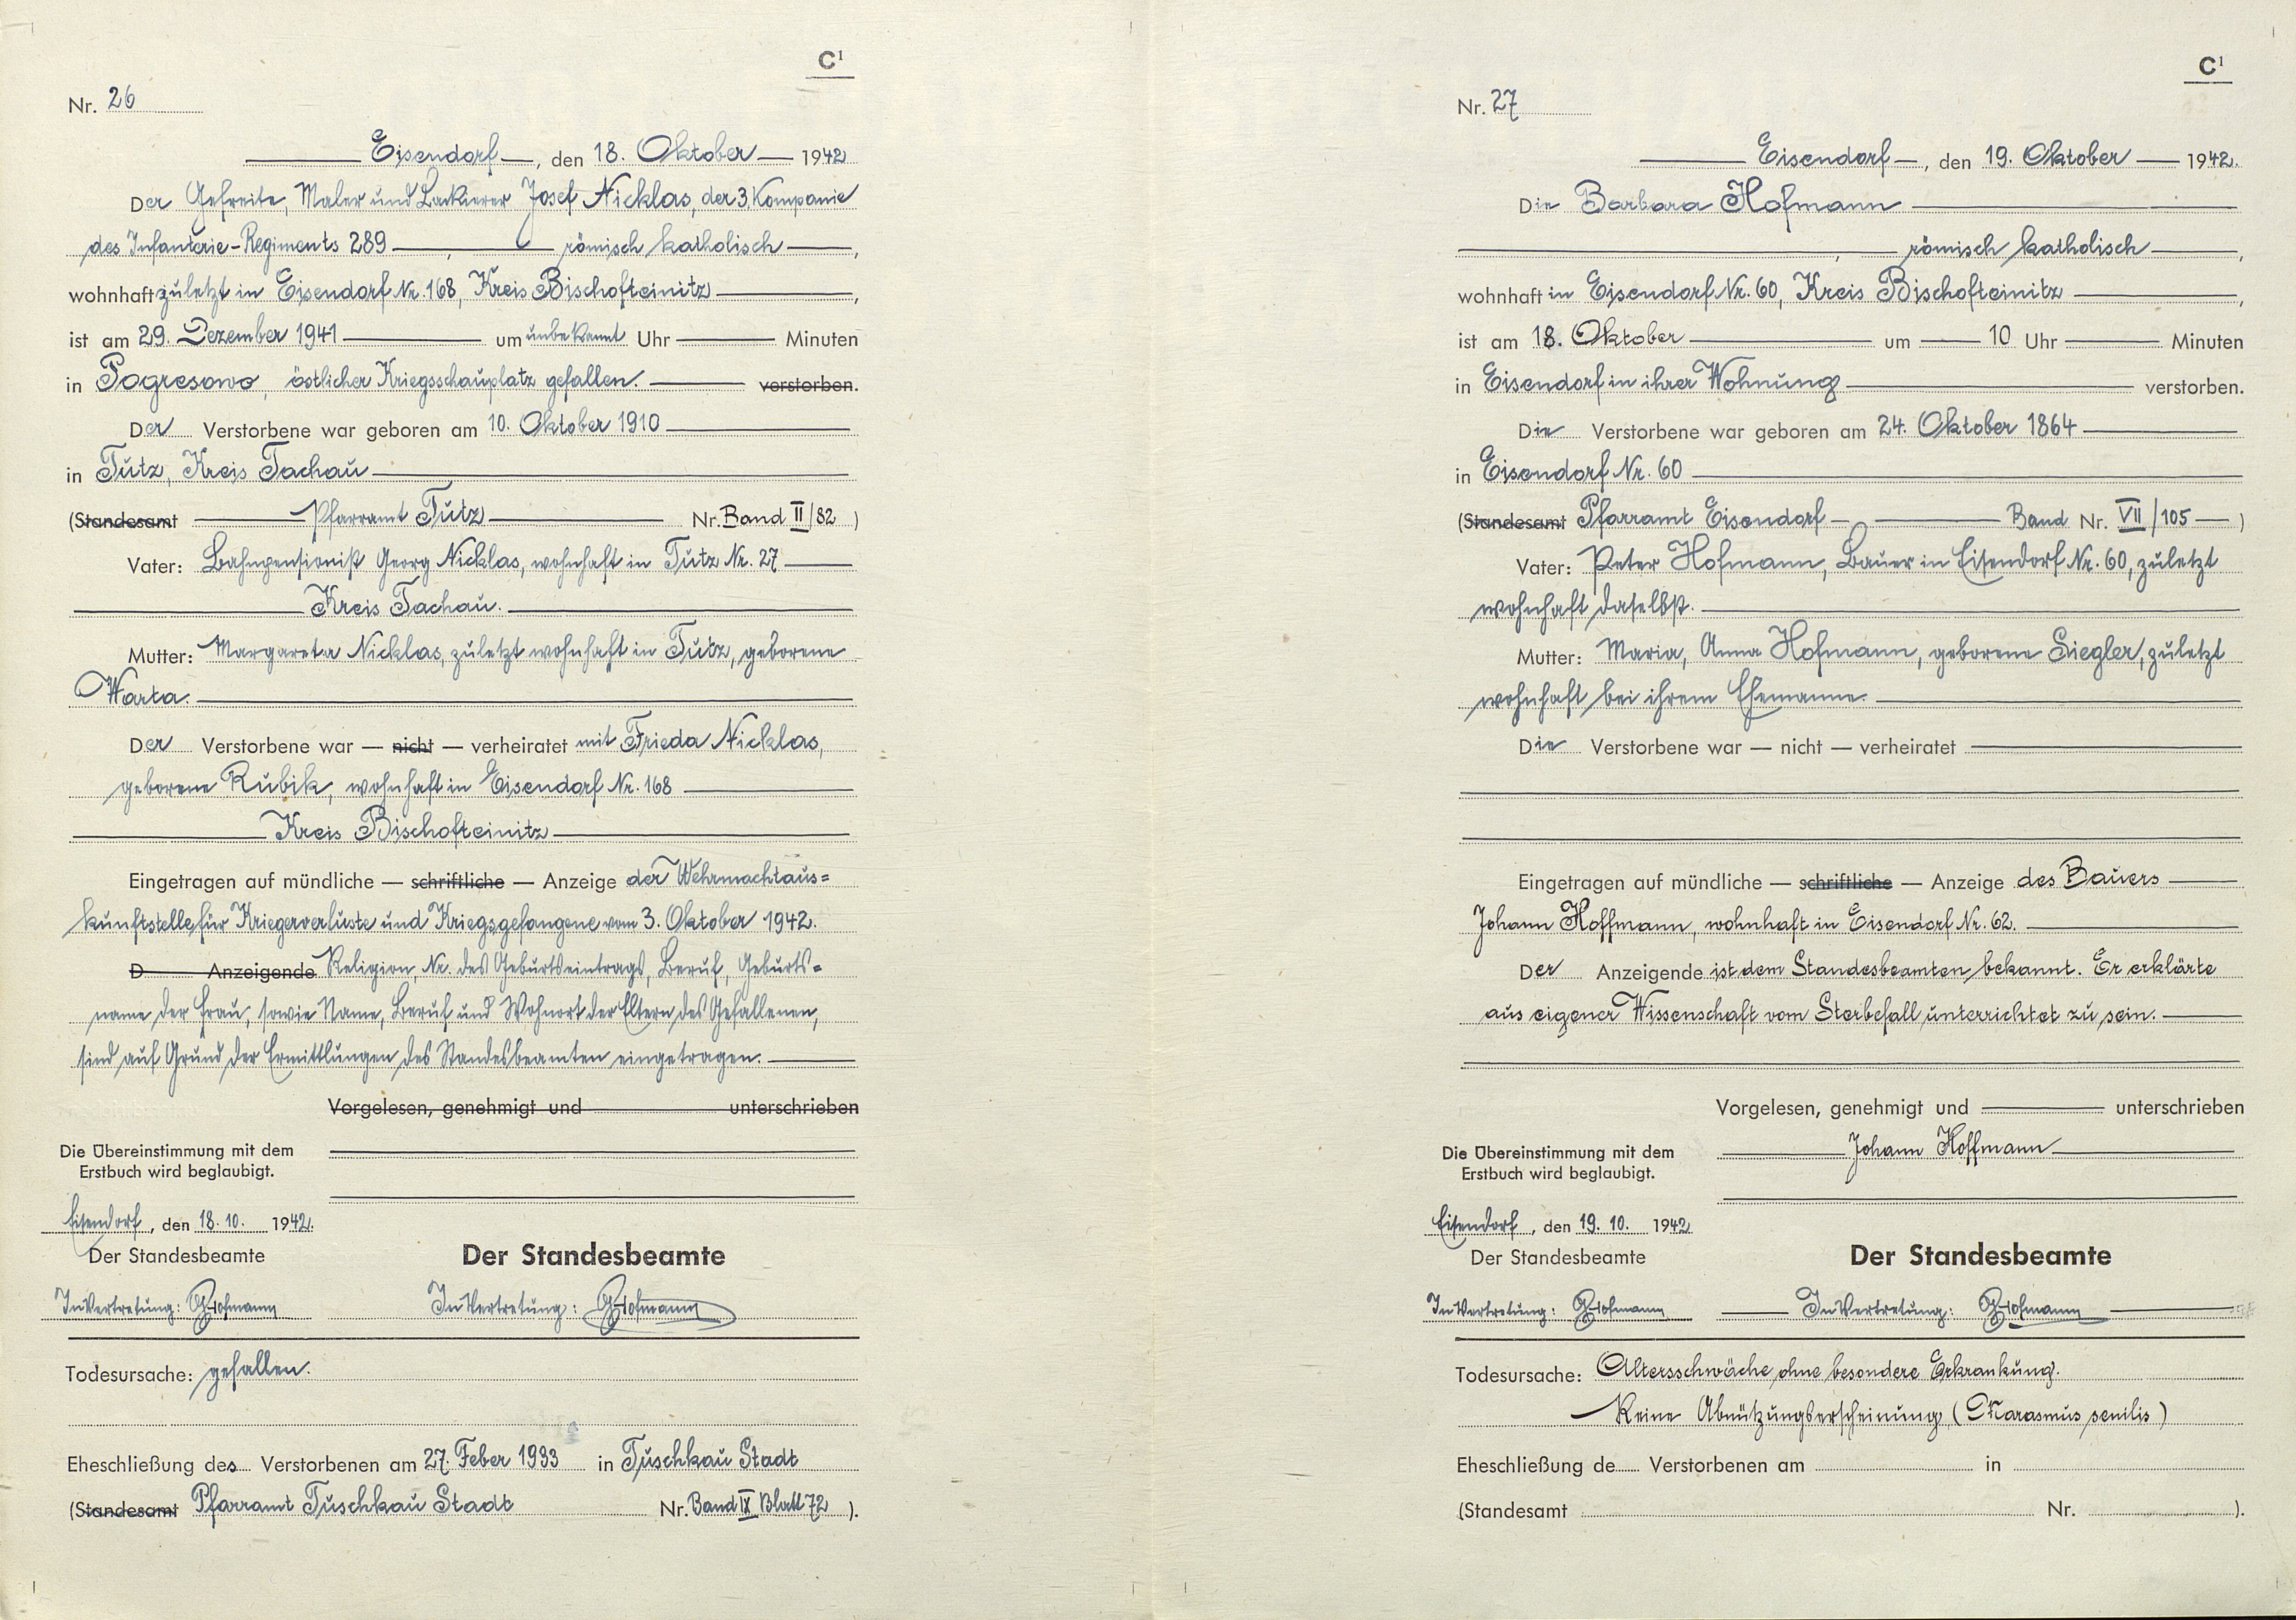 C¹
Nr. 26
Eisendorf, den 18. Oktober 1942
Der Gefreite, Maler und Lackierer Josef Nicklas, der 3. Kompanie
des Infanterie-Regiments 289, römisch katholisch,
wohnhaft zuletzt in Eisendorf Nr. 168, Kreis Bischofteinitz,
ist am 29. Dezember 1941 um unbekannt Uhr Minuten
in Pogresowo, östlicher Kriegsschauplatz gefallen. verstorben.
Der Verstorbene war geboren am 10. Oktober 1910
in Tutz, Kreis Tachau
(Standesamt Pfarramt Tutz Nr. Band II/82 )
Vater: Bahnpensionist Georg Nicklas, wohnhaft in Tutz Nr. 27
Kreis Tachau.
Mutter: Margareta Nicklas, zuletzt wohnhaft in Tutz, geborene
Warta.
Der Verstorbene war — nicht — verheiratet mit Frieda Nicklas,
geborene Kubik, wohnhaft in Eisendorf Nr. 168
Kreis Bischofteinitz
Eingetragen auf mündliche — schriftliche — Anzeige der Wehrmachtaus=
kunftstelle für Kriegerverluste und Kriegsgefangene vom 3. Oktober 1942.
D Anzeigende Religion, Nr. des Geburtseintrags, Beruf, Geburts=
name der Frau, sowie Name, Beruf und Wohnort der Eltern des Gefallenen,
sind auf Grund der Ermittlungen des Standesbeamten eingetragen.
Vorgelesen, genehmigt und unterschrieben
Die Übereinstimmung mit dem
Erstbuch wird beglaubigt.
Eisendorf, den 18. 10. 1942.
Der Standesbeamte
Der Standesbeamte
In Vertretung: G Hofmann
In Vertretung: G Hofmann
Todesursache: gefallen.
Eheschließung des Verstorbenen am 27. Feber 1933 in Tuschkau Stadt
(Standesamt Pfarramt Tuschkau Stadt Nr. Band IX Blatt 72 ).
C¹
Nr. 27
Eisendorf, den 19. Oktober 1942.
Die Barbara Hofmann
, römisch katholisch,
wohnhaft in Eisendorf Nr. 60, Kreis Bischofteinitz,
ist am 18. Oktober um 10 Uhr Minuten
in Eisendorf in ihrer Wohnung verstorben.
Die Verstorbene war geboren am 24. Oktober 1864
in Eisendorf Nr. 60
(Standesamt Pfarramt Eisendorf Band Nr. VII/105 )
Vater: Peter Hofmann, Bauer in Eisendorf Nr. 60, zuletzt
wohnhaft daselbst.
Mutter: Maria, Anna Hofmann, geborene Siegler, zuletzt
wohnhaft bei ihrem Ehemanne.
Die Verstorbene war — nicht — verheiratet
Eingetragen auf mündliche — schriftliche — Anzeige des Bauers
Johann Hoffmann, wohnhaft in Eisendorf Nr. 62.
Der Anzeigende ist dem Standesbeamten bekannt. Er erklärte
aus eigener Wissenschaft vom Sterbefall unterrichtet zu sein.
Vorgelesen, genehmigt und unterschrieben
Johann Hoffmann
Die Übereinstimmung mit dem
Erstbuch wird beglaubigt.
Eisendorf, den 19. 10. 1942
Der Standesbeamte
Der Standesbeamte
In Vertretung: G Hofmann
In Vertretung: G Hofmann
Todesursache: Altersschwäche ohne besondere Erkrankung.
Keine Abnützungserscheinung (Marasmus senilis)
Eheschließung de Verstorbenen am in
(Standesamt Nr. ).